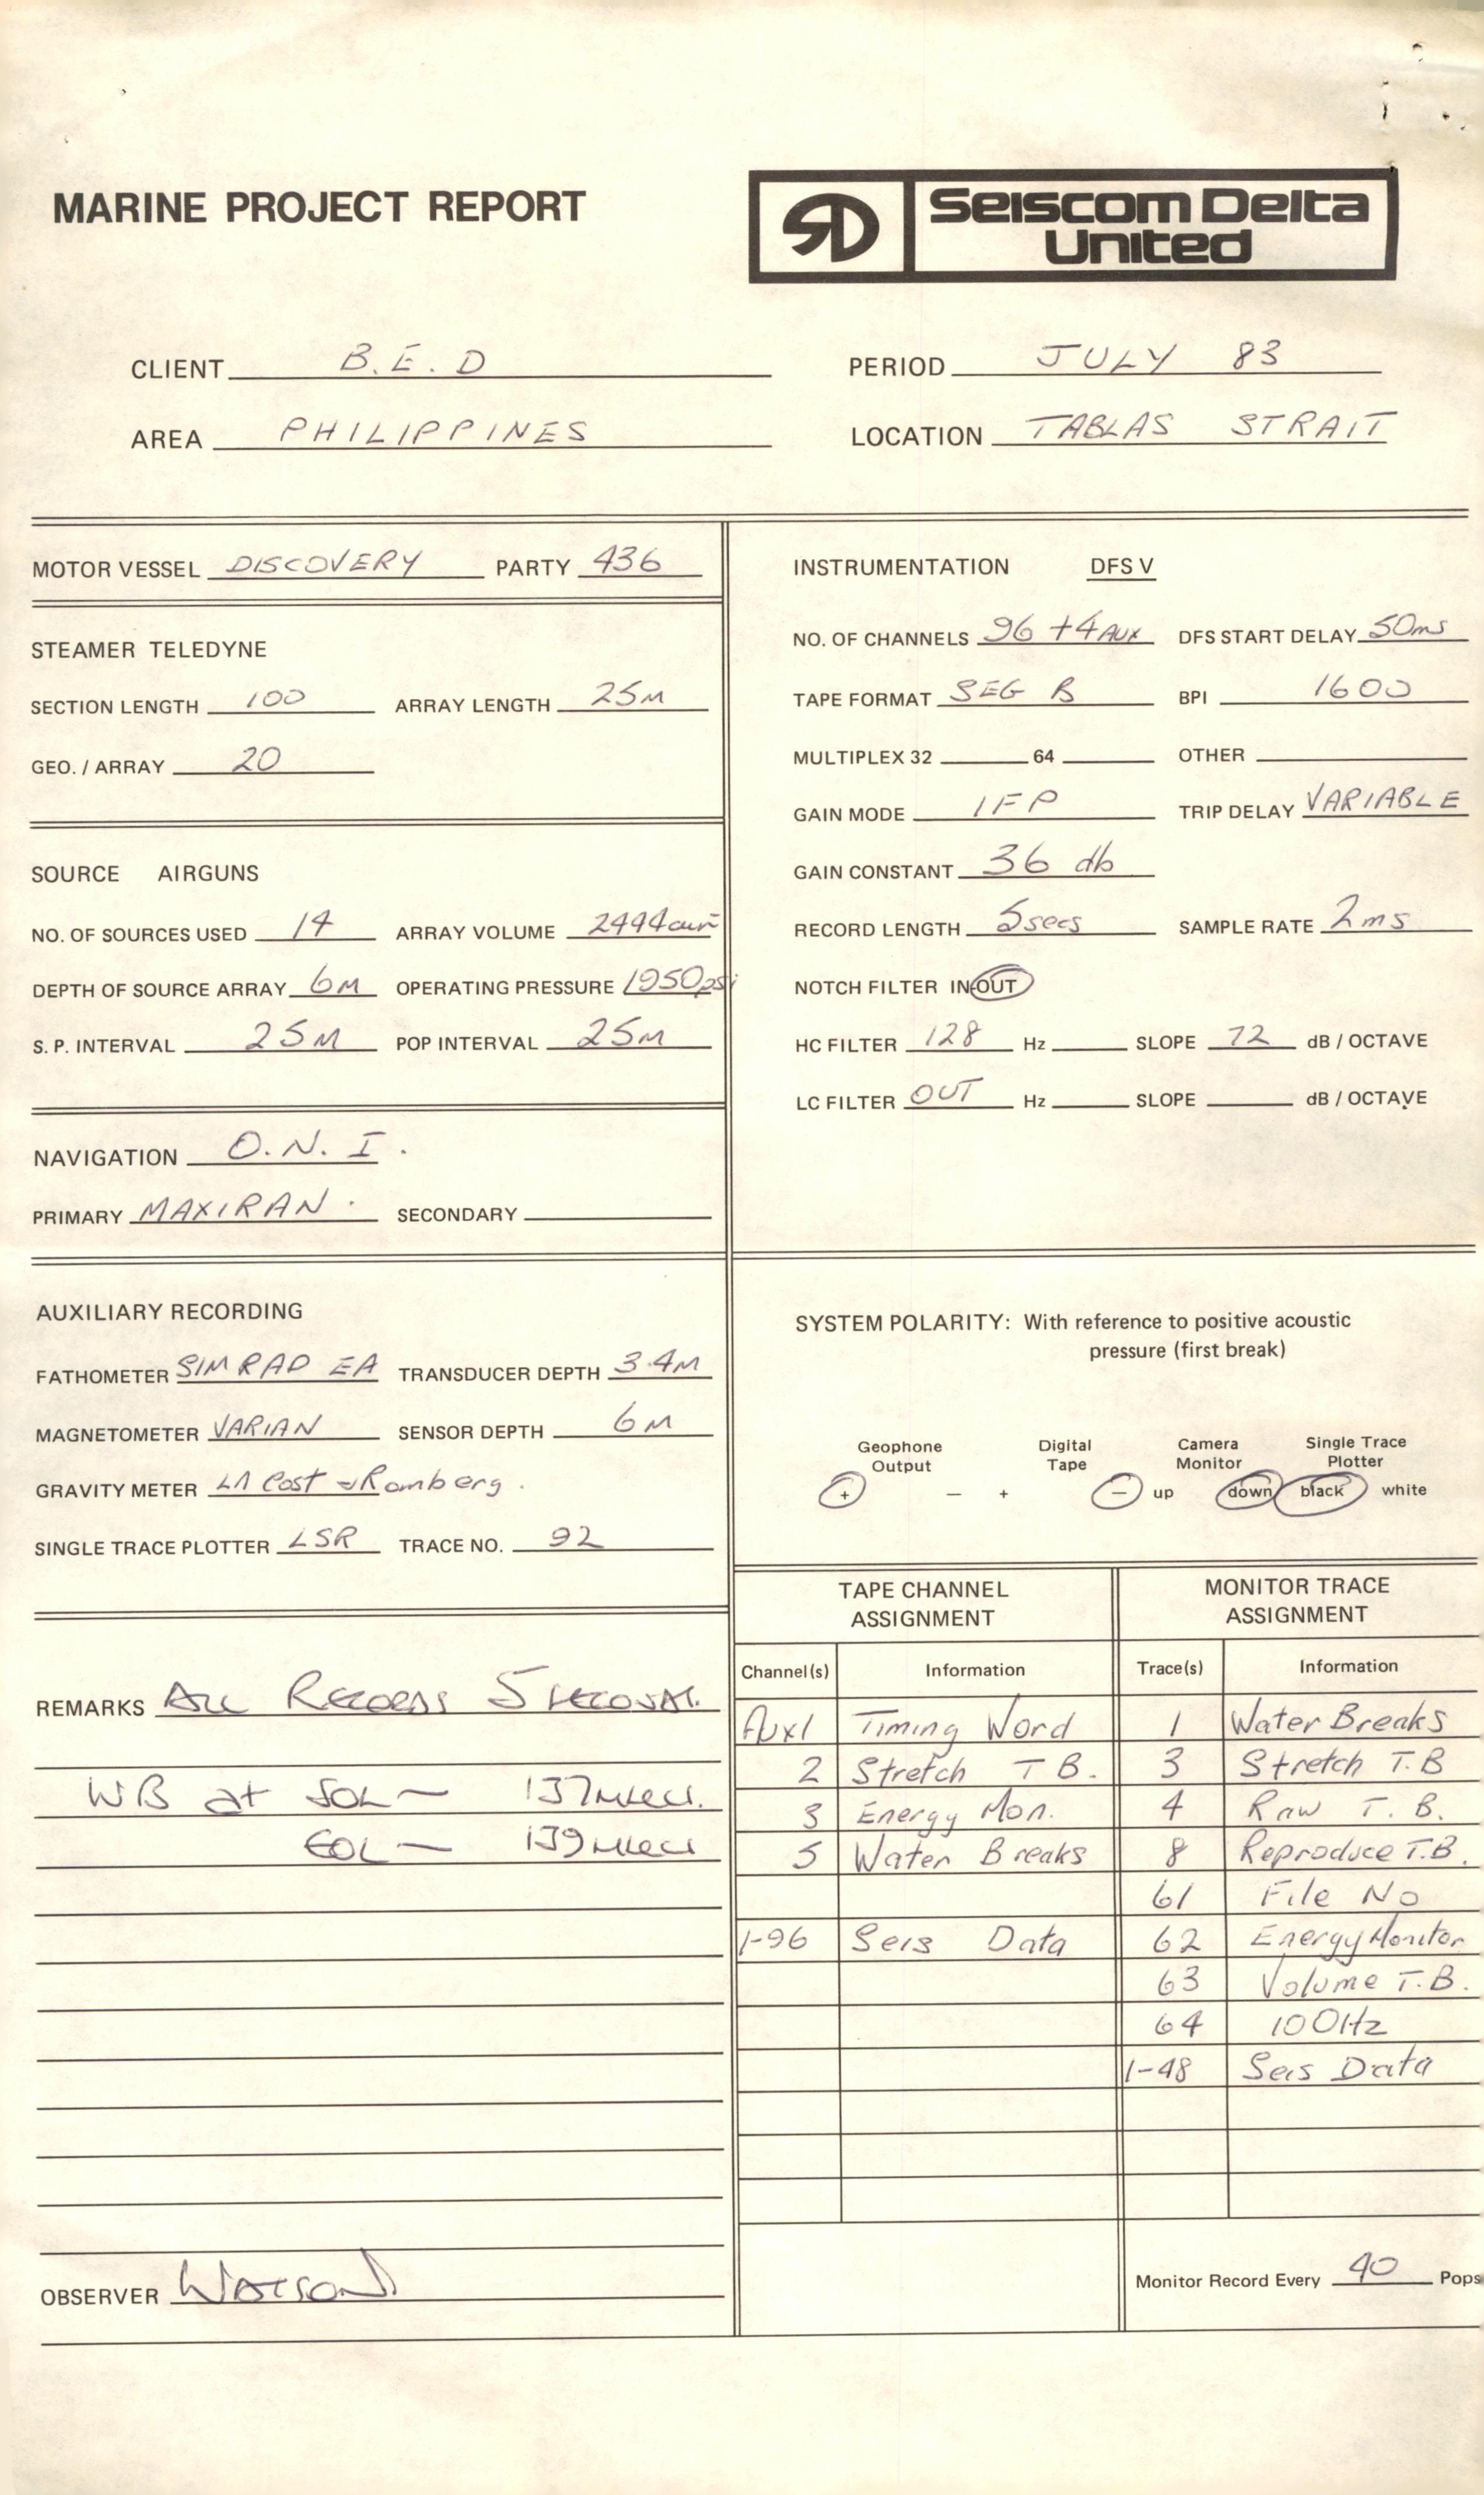 MARINE PROJECT REPORT
SD Seiscom Delta
United
CLIENT B.E.D PERIOD JULY 83
AREA PHILIPPINES LOCATION TABLAS STRAIT
MOTOR VESSEL DISCOVERY PARTY 436
STEAMER TELEDYNE
SECTION LENGTH 100 ARRAY LENGTH 25M
GEO. / ARRAY 20
SOURCE AIRGUNS
NO. OF SOURCES USED 14 ARRAY VOLUME 2494
DEPTH OF SOURCE ARRAY 6M OPERATING PRESSURE 1950psi
S. P. INTERVAL 25M POP INTERVAL 25M
NAVIGATION O.N.I.
PRIMARY MAXIRAN. SECONDARY
AUXILIARY RECORDING
FATHOMETER SIMRAD EA TRANSDUCER DEPTH 3.4M
MAGNETOMETER VARIAN SENSOR DEPTH 6M
GRAVITY METER LA Cost & Romberg.
SINGLE TRACE PLOTTER LSR TRACE NO. 92
REMARKS All Records 5 second.
WB at SOL — 137msec.
EOL — 139msec
OBSERVER WATSON
INSTRUMENTATION DFS V
NO. OF CHANNELS 96 +4 AUX DFS START DELAY 50ms
TAPE FORMAT SEG B BPI 1600
MULTIPLEX 32 64 OTHER
GAIN MODE IFP TRIP DELAY VARIABLE
GAIN CONSTANT 36 db
RECORD LENGTH 5secs SAMPLE RATE 2ms
NOTCH FILTER IN OUT
HC FILTER 128 Hz SLOPE 72 dB / OCTAVE
LC FILTER OUT Hz SLOPE dB / OCTAVE
SYSTEM POLARITY: With reference to positive acoustic
pressure (first break)
Geophone Digital Camera Single Trace
Output Tape Monitor Plotter
+ — + — up down black white
TAPE CHANNEL MONITOR TRACE
ASSIGNMENT ASSIGNMENT
Channel(s) Information Trace(s) Information
Aux1 Timing Word 1 Water Breaks
2 Stretch T B. 3 Stretch T.B
3 Energy Mon. 4 Raw T. B.
5 Water Breaks 8 Reproduce T.B.
61 File No
1-96 Seis Data 62 Energy Monitor
63 Volume T.B.
64 100Hz
1-48 Seis Data
Monitor Record Every 40 Pops